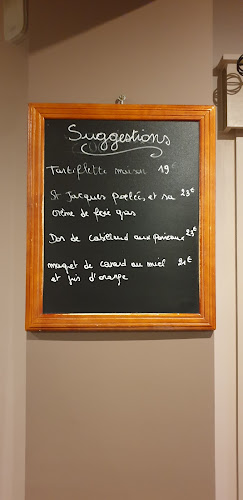 Suggestions
Tartiflette maison 19€
St Jacques poêlées, et sa 23€
crème de foie gras
Dos de cabillaud aux poireaux 23€
magret de canard au miel 21€
et jus d'orange